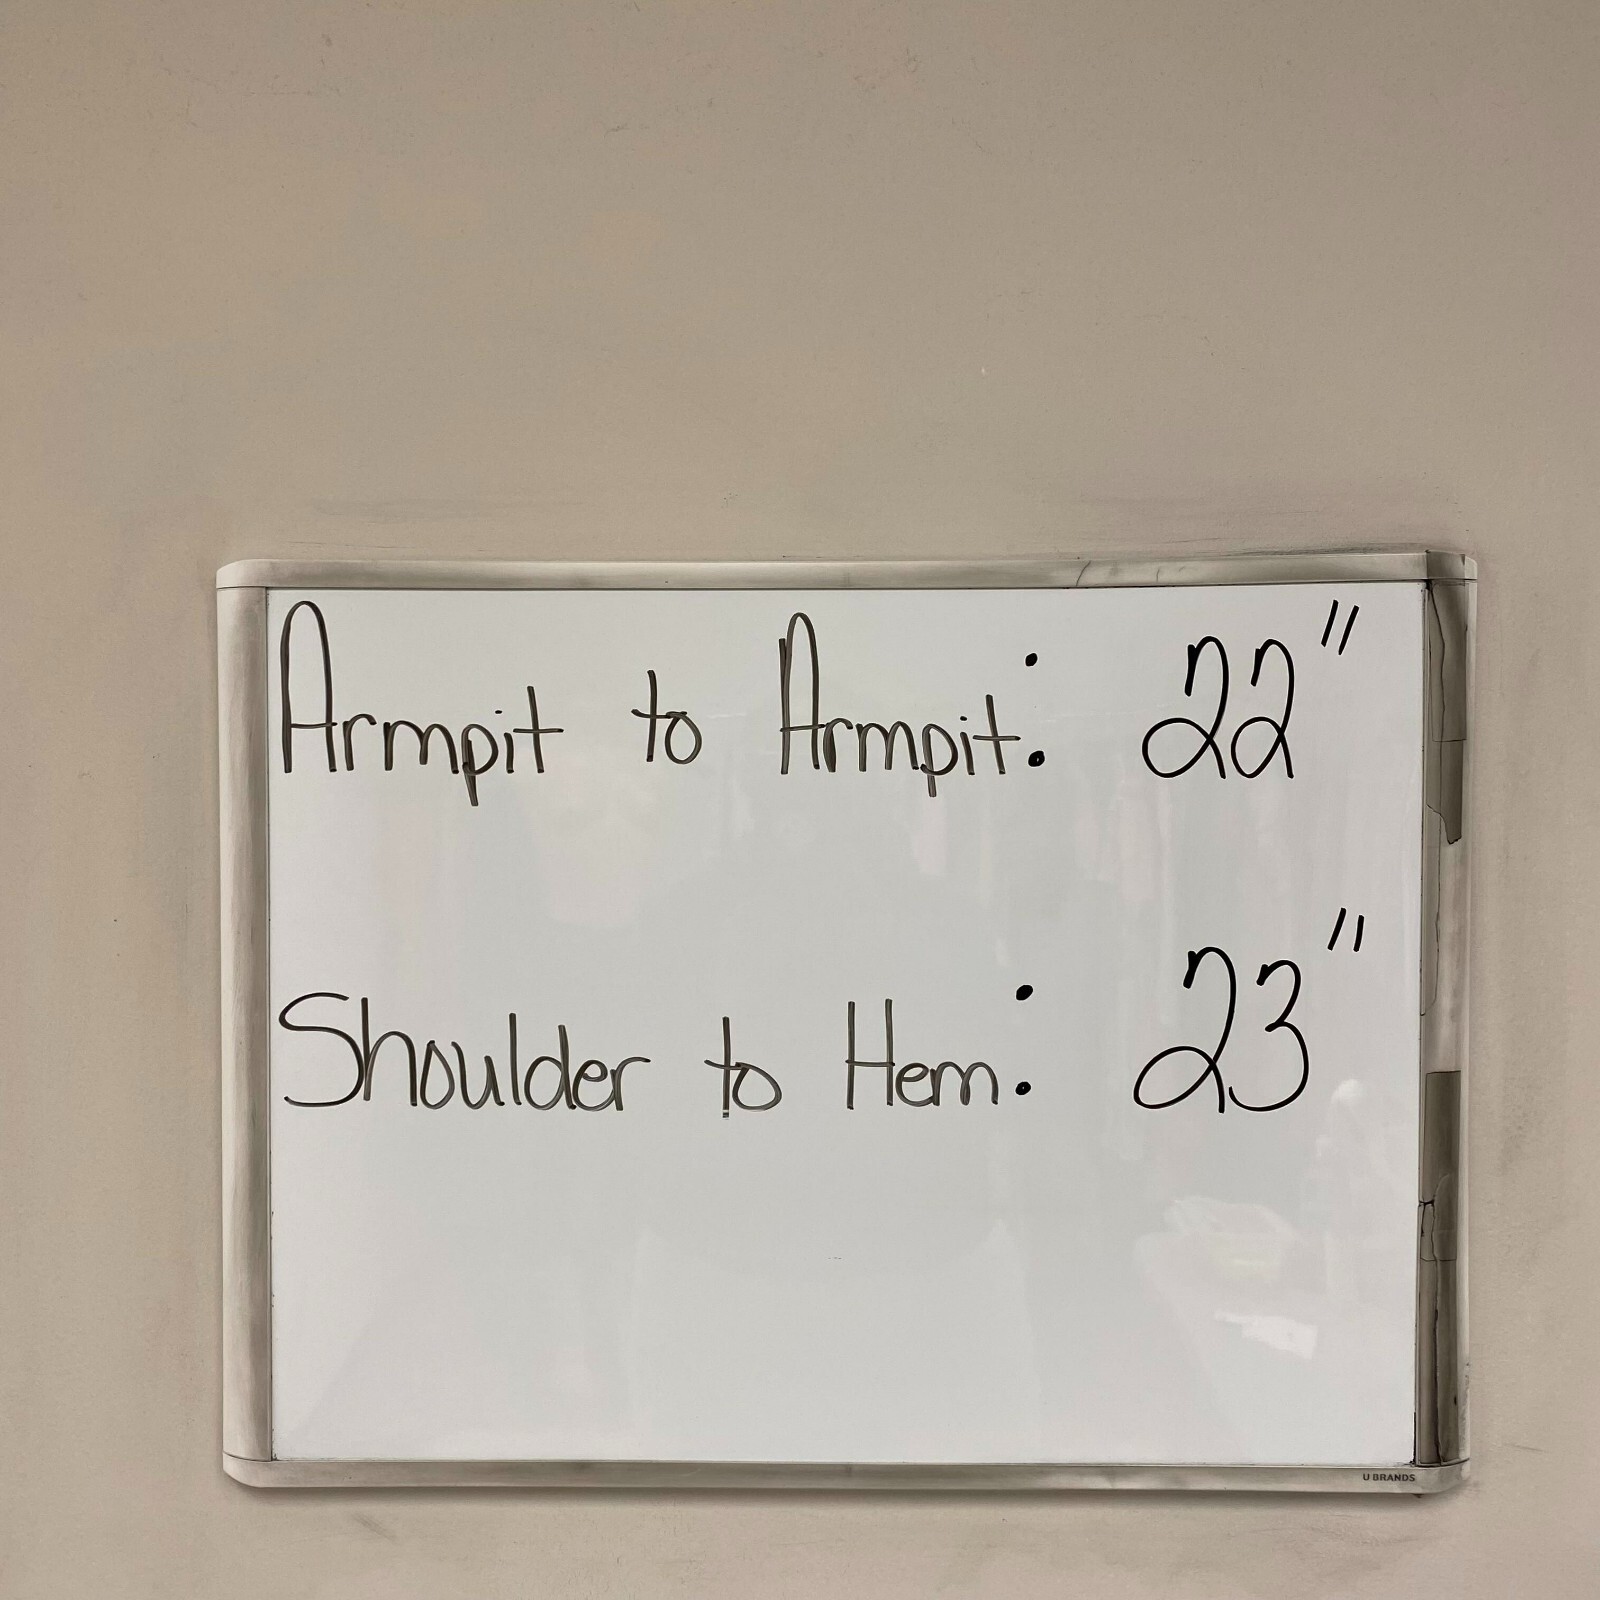 Armpit to Armpit: 22"
Shoulder to Hem: 23"
U BRANDS